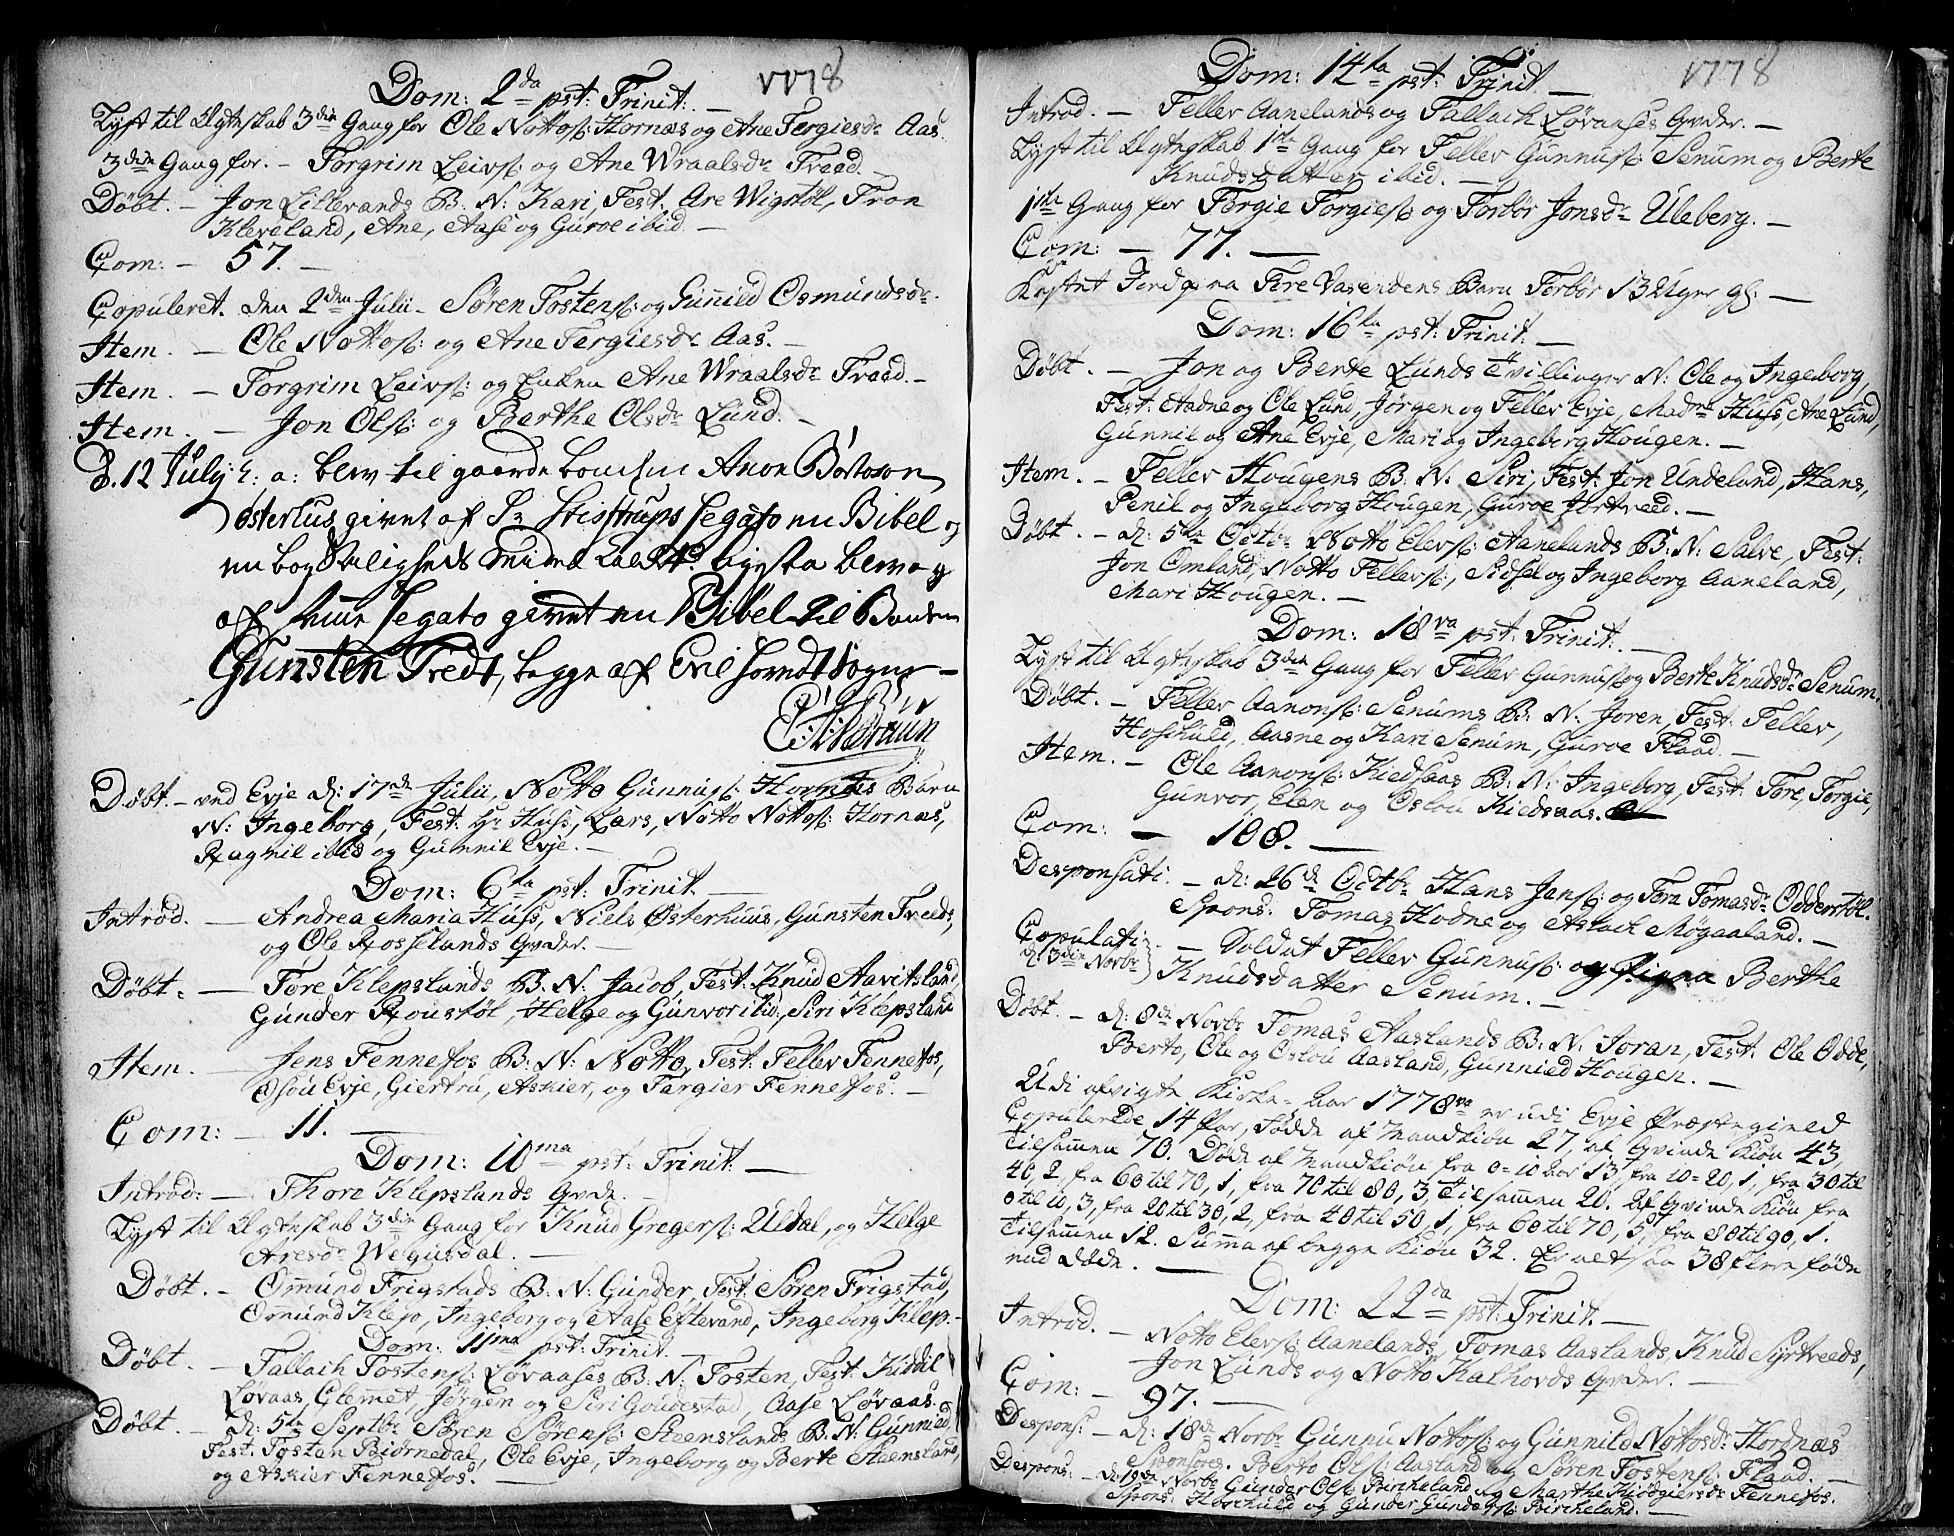 1778
Dom: 2da pst: Trinit: —
Lyst til Ægteskab 3die Gang for Ole Nottoss: Hornæs og Ane Tergiesdr Aas.
3die Gang for. – Torgrim Leivss: og Ane Wraalsdr Tvedt. –
Døbt. – Jon Lillerands B: N: Kari, Fest: Are Wigstøl, Tron
Kleveland, Ane, Aase og Guroe ibid. —
Com: – 57. –
Copuleret. den 2den Julii – Søren Tostenss: og Gunnild Osmundsdr.
Item. — Ole Nottoss: og Ane Tergiesdr Aas. –
Item. — Torgrim Leivss: og Enken Ane Wraalsdr Tveed. –
Item. — Jon Olss: og Berthe Olsdr Lund. –
D. 12 July: h: a: blev til gaarde bonden Anon Børtoson
Østerhus givet af Sr Stistrups Legato en Bibel og
en bog af hine Legato givet en Bibel til Bonden
Gunsten Tredt, begge af Evie hoved Sogn —
Døbt. – ved Evje d: 17de Julii, Notto Gunnuss: Hornæs Barn
N: Ingeborg, Fest: Hr Huss, Lars, Notto Nottoss: Hornæs,
Ragnil ibid og Gunnil Evje. –
Dom: 6ta pst: Trinit. —
Introd. — Andrea Maria Huss, Niels Østerhuus, Gunsten Tveeds,
og Ole Rosselands Qvder. –
Døbt. — Tore Klepslands B: N: Jacob, Fest: Knud Aavitsland,
Gunder Roustøl, Helge og Gunvor ibid:, Siri Klepsland
Item. — Jens Fennefos B: N: Notto, Fest: Tellev Fennefos,
Osou Evje, Giertru, Askier, og Targier Fennefos. –
Com: — 11. —
Dom: 10ma pst: Trinit: —
Introd: — Thore Klepslands Qvde. –
Lyst til Ægteskab 3die Gang for Knud Gregerss: Uldal, og Helge
Aresdr Weigusdal. —
Døbt. – Omund Frigstads B: N: Gunder, Fest: Søren Frigstad,
Osmund Klep, Ingeborg og Aase Eftevand, Ingeborg Klep. –
Dom: 11ma pst: Trinit. —
Døbt. – Tallach Tostenss: Løvaases B: N: Tosten, Fest: Kiddil
Løvaas, Clemmet, Jørgen og Siri Goudestad, Aase Løvaas.
Døbt. – d: 5te Septbr Søren Sørenss: Steenslands B: N: Gunnied
Fest: Tosten Biørnedal, Ole Evje, Ingeborg og Berte Steensland,
og Askier Fennefos. —
1778
Dom: 14ta pst: Trinit —
Introd. – Tellev Aanelands og Tallach Løvaases Qvder. –
Lyst til Ægteskab 1ste Gang for Tellev Gunnuss: Senum og Berte
Knudsdatter ibid. —
1ste Gang for Tergie Torgiess: og Torbør Jonsdr Uleberg. –
Com: — 77. —
Kastet Jord paa Tore Vasendens Barn Torbør 13 Uger gl: —
Dom: 16ta pst: Trinit: —
Døbt. – Jon og Berte Lunds Tvillinger N: Ole og Ingeborg,
Fest: Aadne og Ole Lund, Jørgen og Tellev Evje, Madme Huss, Ane Lund,
Gunnil og Ane Evje, Mari og Ingeborg Hougen. –
Item. – Tellev Hougens B: N: Siri, Fest: Jon Undeland, Hans,
Penil og Ingeborg Hougen, Guroe Hortveed. –
Døbt. – d: 5te Octbr Notto Elevss: Aanelands B: N: Salve, Fest:
Jon Omland, Notto Tellevss:, Sidsel og Ingeborg Aaneland,
Mari Hougen. –
Dom: 18va pst: Trinit. —
Lyst til Ægteskab 3die Gang for Tellev Gunnuss: og Berte Knudsdr Senum.
Døbt. – Tellev Aanonss: Senums B: N: Joren, Fest: Tellev,
Hoschuld, Aasne og Kari Senum, Guroe Flaad. –
Item. – Ole Aanonss: Kiedsaas B: N: Ingeborg, Fest: Tore, Torgie,
Gunvor, Elen og Oslou Kiedsaas.
Com: — 108. —
Desponsati. – d: 26de Octbr Hans Jenss: og Tora Tomasdr Odderstøl.
Spons: Tomas Hodne og Aslach Møgaaland. –
Copulati d: 3die Novbr – Soldat Tellev Gunnuss: og Pigen Berthe
Knudsdatter Senum. –
Døbt. – d: 8de Novbr Tomas Aaslands B: N: Joran, Fest: Ole Odde,
Berto, Ole og Oslou Aasland, Gunnied Hougen. –
Udi afvigte Kirke-Aar 1778 er udi Evje Præstegield
Copulerede 14 Par, Fødde af Mandkiøn 27, af Qvinde Kiøn 43,
Tilsammen 70. Døde af Mandkiøn fra 0 = 10 Aar 13, fra 10 = 20, 1, fra 30 til
40, 2, fra 60 til 70, 1, fra 70 til 80, 3, Tilsammen 20. Af Qvinde Kiøn fra
0 til 10, 3, fra 20 til 30, 2, fra 40 til 50, 1, fra 60 til 70, 5, fra 80 til 90, 1.
Tilsammen 12. Summa af begge Kiøn 32. Er altsaa 38 flere føde
end døde. —
Dom: 22da pst: Trinit. —
Introd. – Notto Elevss: Aanelands, Tomas Aaslands, Knud Syrtveeds,
Jon Lunds og Notto Kalhovds Qvder. –
Com: – 97. —
Despons: – d: 18de Novbr Gunnu Nottoss: og Gunnild Nottosdr Hordnæs
Sponsores. Berto Olss: Aasland og Søren Tostenss: Flaad. –
Despons: – d: 19de Novbr Gunder Olss: Bircheland og Marthe Kiødgiersdr Fennefos.
Spons: Hoschuld og Gunder Gunderss: Bircheland. –